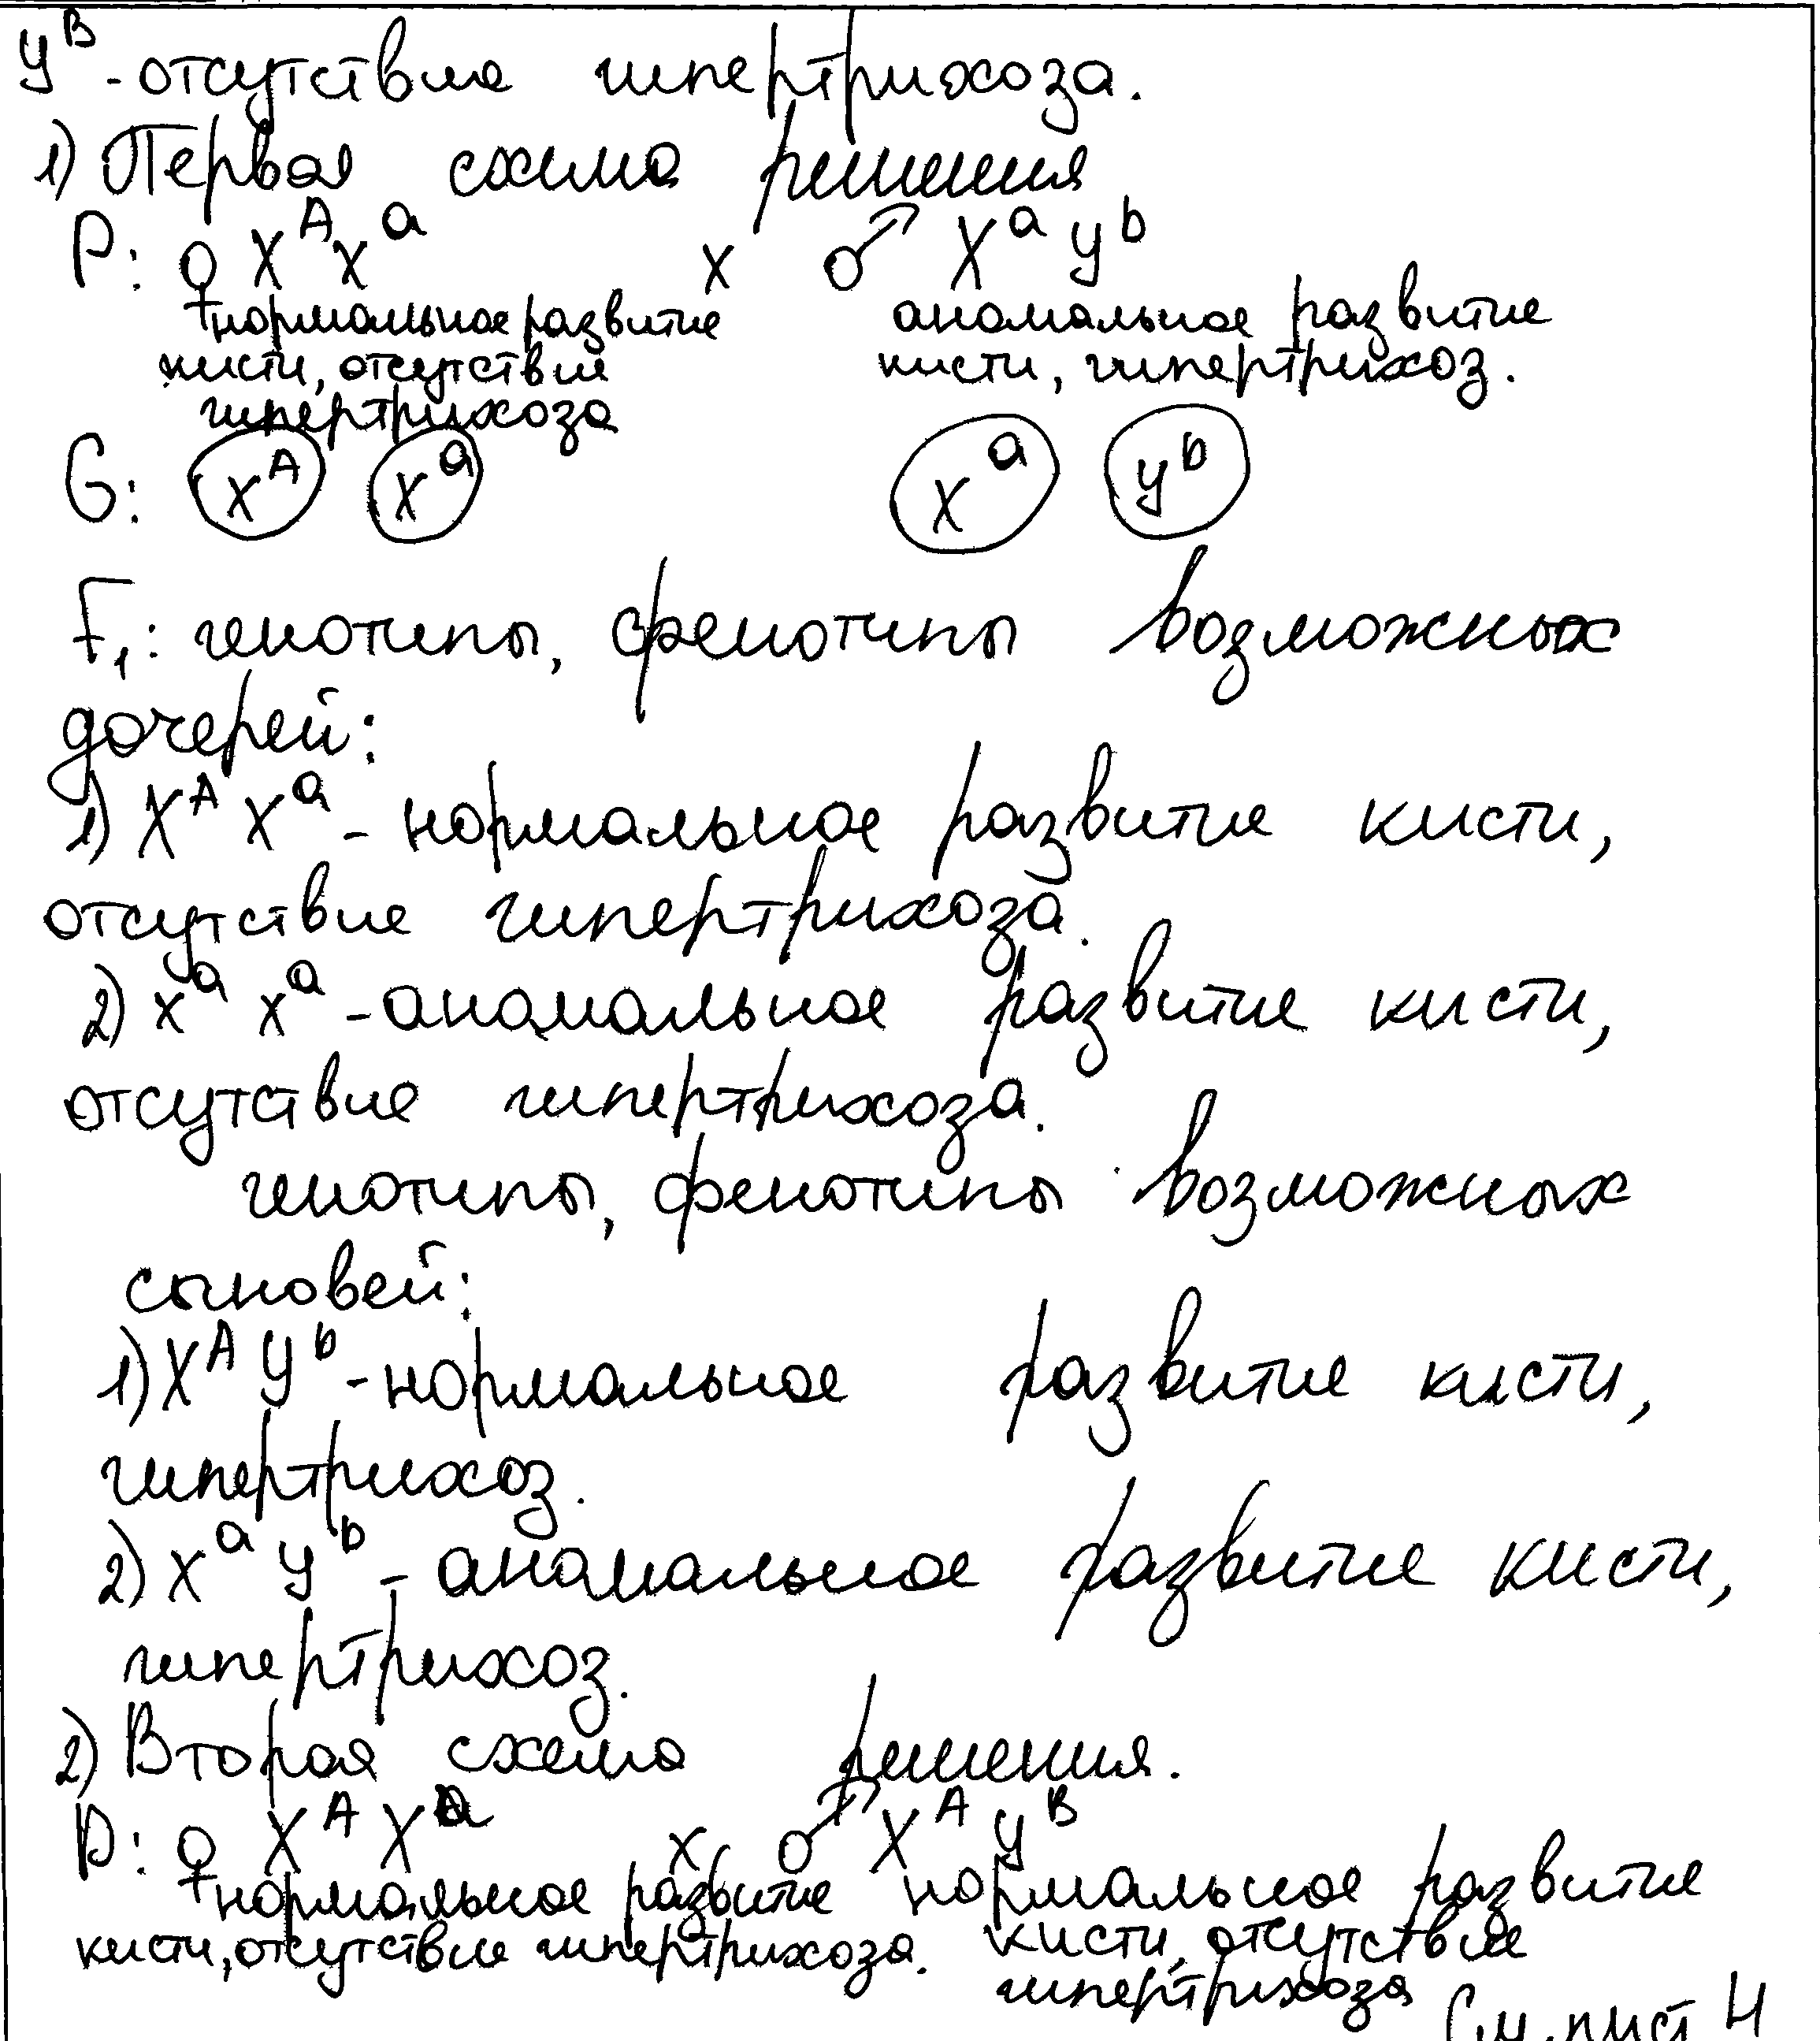 У^В - отсутствие гипертрихоза.
1) Первая схема решения
P: ♀ X^A X^a x ♂ X^a У^b
нормальное развитие аномальное развитие
кисти, отсутствие кисти, гипертрихоз.
гипертрихоза
G: X^A X^a X^a У^b
F₁: генотипы, фенотипы возможных
дочерей:
1) X^A X^a - нормальное развитие кисти,
отсутствие гипертрихоза.
2) X^a X^a - аномальное развитие кисти,
отсутствие гипертрихоза.
генотипы, фенотипы возможных
сыновей:
1) X^A У^b - нормальное развитие кисти,
гипертрихоз.
2) X^a У^b - аномальное развитие кисти,
гипертрихоз.
2) Вторая схема решения.
P: ♀ X^A X^a x ♂ X^A У^В
нормальное развитие нормальное развитие
кисти, отсутствие гипертрихоза. кисти, отсутствие
гипертрихоза
См. лист 4